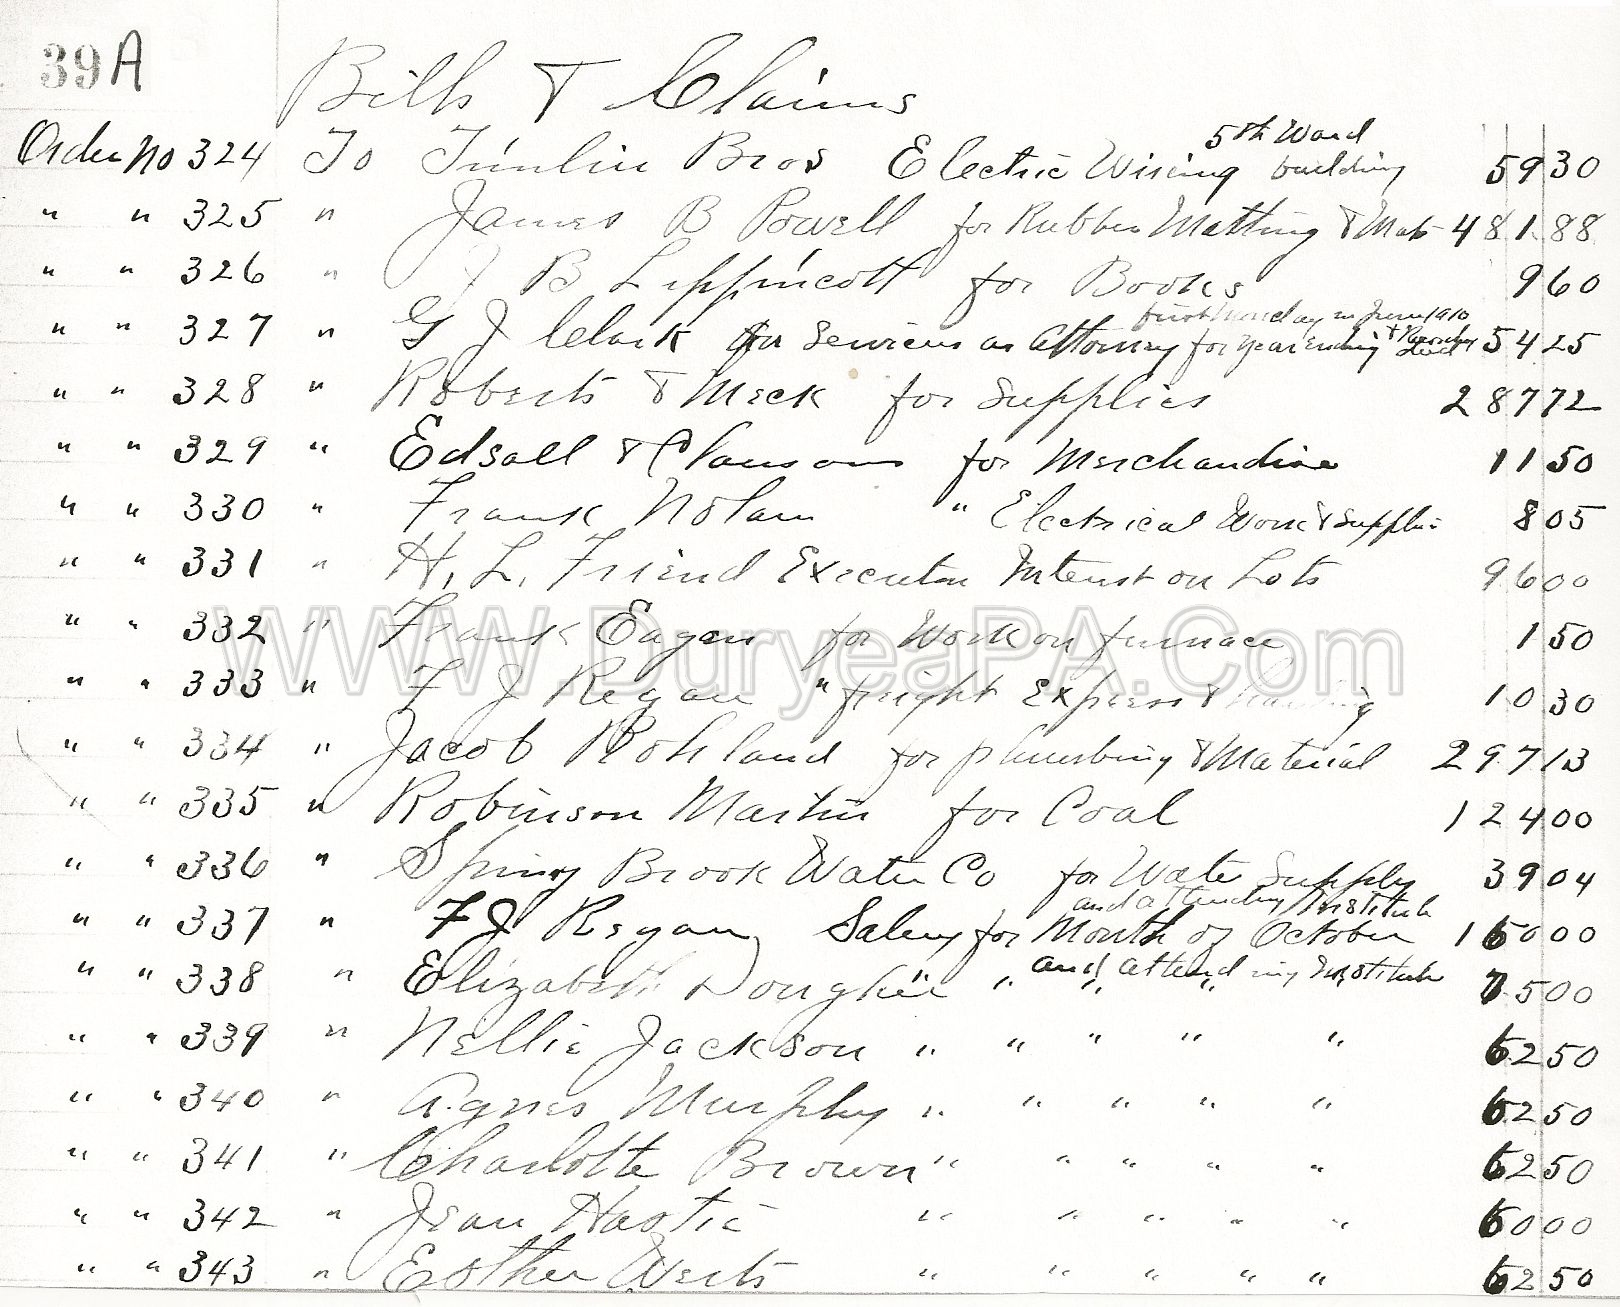 39A
Bills & Claims
Order No 324 To Timlin Bros Electric Wiring 5th Ward building 59 30
" " 325 " James B Powell for Rubber Matting & Mats 481 88
" " 326 " J B Lippincott for Books 9 60
" " 327 " G J Clark for Services as Attorney for year ending first Monday in June 1910 & Recording Deed 54 25
" " 328 " Roberts & Meck for Supplies 287 72
" " 329 " Edsall & Clausons for Merchandise 11 50
" " 330 " Frank Nolan " Electrical Work & Supplies 8 05
" " 331 " H. L. Friend Executor Interest on Lots 96 00
" " 332 " Frank Eagen for Work on furnace 1 50
" " 333 " F J Regan " freight Express & hauling 10 30
" " 334 " Jacob Rohland for plumbing & Material 297 13
" " 335 " Robinson Martin for Coal 124 00
" " 336 " Spring Brook Water Co for Water Supply 39 04
" " 337 " F J Regan Salery for Month of October and attending Institute 160 00
" " 338 " Elizabeth Dougher " " " " and attending Institute 75 00
" " 339 " Nellie Jackson " " " " " 62 50
" " 340 " Agnes Murphy " " " " " 62 50
" " 341 " Charlotte Brown " " " " " 62 50
" " 342 " Jean Hastie " " " " " 60 00
" " 343 " Esther Werts " " " " " 62 50
WWW.DuryeaPA.Com